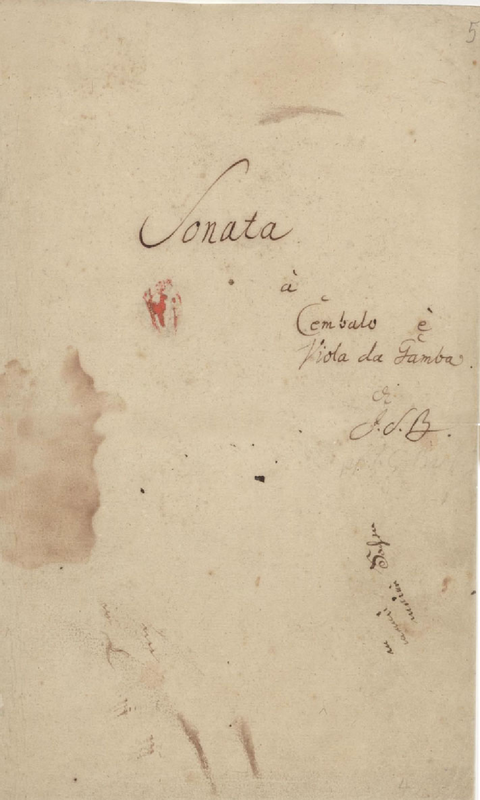 5
Sonata
à
Cembalo è
Viola da Gamba.
di
J.S.B.